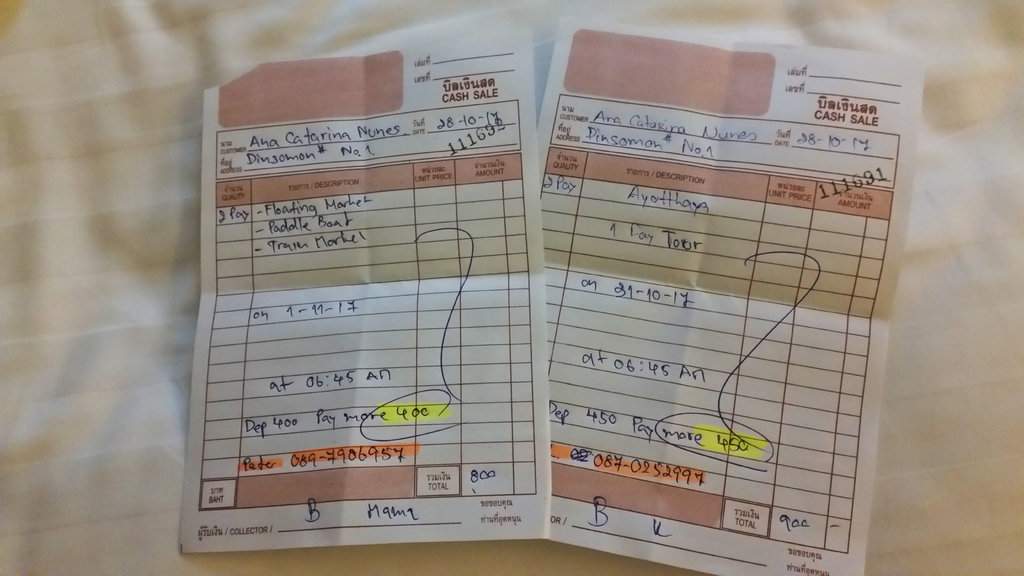 เล่มที่
เลขที่
บิลเงินสด
CASH SALE
นาม
CUSTOMER Ana Catarina Nunes วันที่
DATE 28-10-17
ที่อยู่
ADDRESS Dinsomon# No.1
111695
จำนวน
QUALITY
รายการ / DESCRIPTION
หน่วยละ
UNIT PRICE
จำนวนเงิน
AMOUNT
- Floating Market
- Paddle Boat
- Train Market
on 1-11-17
at 06:45 AM
Dep 400 Pay more 400
Peter 089-7906957
บาท
BAHT
รวมเงิน
TOTAL
800
B Hama
ผู้รับเงิน / COLLECTOR /
ขอขอบคุณ
ท่านที่อุดหนุน
เล่มที่
เลขที่
บิลเงินสด
CASH SALE
นาม
CUSTOMER Ana Catarina Nunes วันที่
DATE 28-10-17
ที่อยู่
ADDRESS Dinsomon# No.1
111691
จำนวน
QUALITY
รายการ / DESCRIPTION
หน่วยละ
UNIT PRICE
จำนวนเงิน
AMOUNT
Ayotthaya
1 Day Tour
on 31-10-17
at 06:45 AM
Dep 450 Pay more 450
087-0252997
รวมเงิน
TOTAL
900 -
B K
OR /
ขอขอบคุณ
ท่านที่อุดหนุน